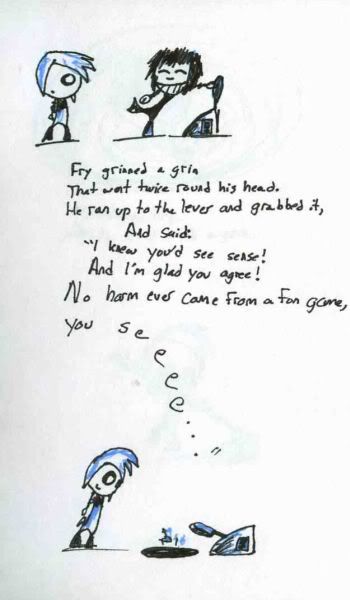 Fry grinned a grin
That went twice round his head.
He ran up to the lever and grabbed it,
And said:
"I knew you'd see sense!
And I'm glad you agree!
No harm ever came from a fun game,
you s e
e
e
e
e
. . . "